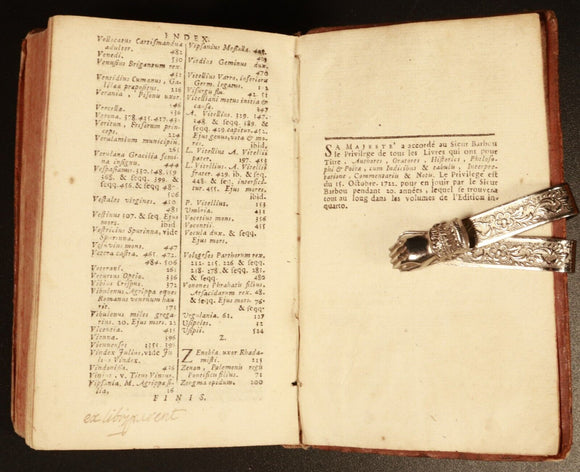 INDEX.
Vellocatus Carrismandua
adulter. 482
Venedi. 530
Venusius Brigantum rex.
Ventidius Cumanus, Ga-
lilææ præpositus. 226
Verania, Pisonis uxor.
346
Vercella. 336
Verona. 378. 415. 427. 431.
Veritus, Frisiorum prin-
ceps. 224
Verulamium municipium.
Verulana Gracilia femi-
na insignis. 444
Vespasianus. 330. 148. 359
368. & seqq. 399. &
seqq. 456 & seqq.
Vestales virgines. 450.
Vestinus 307. & seq. Ejus
mors. ibid.
Vestricius Spurinna, vide
Spurinna.
Vesuvius mons. 447
Vetera castra. 461. 472.
484. 506
Veterani. 261
Veturius Opta. 336
Vibius Crispus. 372
Vibulenus Agrippa eques
Romanus venenum hau-
rit. 171
Vibulenus miles grega-
rius. 20. Ejus mors. 22.
Vicentia. 415
Vienna. 501.
Viennenses 1351. 396
Vindex Julius, vide Ju-
lius Vindex.
Vinius. v. Titus Vinius.
Vipsania, M. Agrippæ fi-
lia. 16
Vipsanius Messalla. 428.
Virdius Geminus dux.
470
Vitellius Varro, inferioris
Germ. legatus. 102
Visurgis flu. 42. 51
Vitelliani motus initia &
causa. 347
A. Vitellius. 329. 147.
248. & seqq. 389. &
seqq. 419. capitur. 452.
Ejus genus, vita & mo-
res. ibid.
L. Vitellius A. Vitellii
pater. 195
L. Vitellius A. Vitellii
frater. 429. ib. & seq.
448. & seq. interfici-
tur. 455. Ejus mores.
ibid.
P. Vitellius. 153
Umbria. 431
Vocetius mons. 356
Vocontii. 355
Vocula dux. & seqq.
Ejus mors.
Vologeses Parthorum rex.
212. 215. 226. & seqq.
278. 278. & seqq. 281.
& seqq. 482
Vonones Phrahatis filius.
Arsacidarum rex. 48.
& seqq. Ejus mors. 76.
& seqq
Urgulania. 61. 107
Usipetes. 52
Usipii. 524
Z.
Zenobia uxor Rhada-
misti. 225
Zenon, Polemonis regis
Pontici filius. 71
Zeugma oppidum. 200
FINIS.
SA MAJESTE' a accordé au Sieur Barbou
le Privilege de tous les Livres qui ont pour
Titre, Authores, Oratores, Historici, Philoso-
phi & Poëtæ, cum Indicibus & tabulis, Interpre-
tatione, Commentariis & Notis. Le Privilege est
du 15. Octobre. 1712. pour en jouir par le Sieur
Barbou pendant 20. années, lequel se trouvera
tout au long dans les volumes de l'Edition in-
quarto.
ex libry